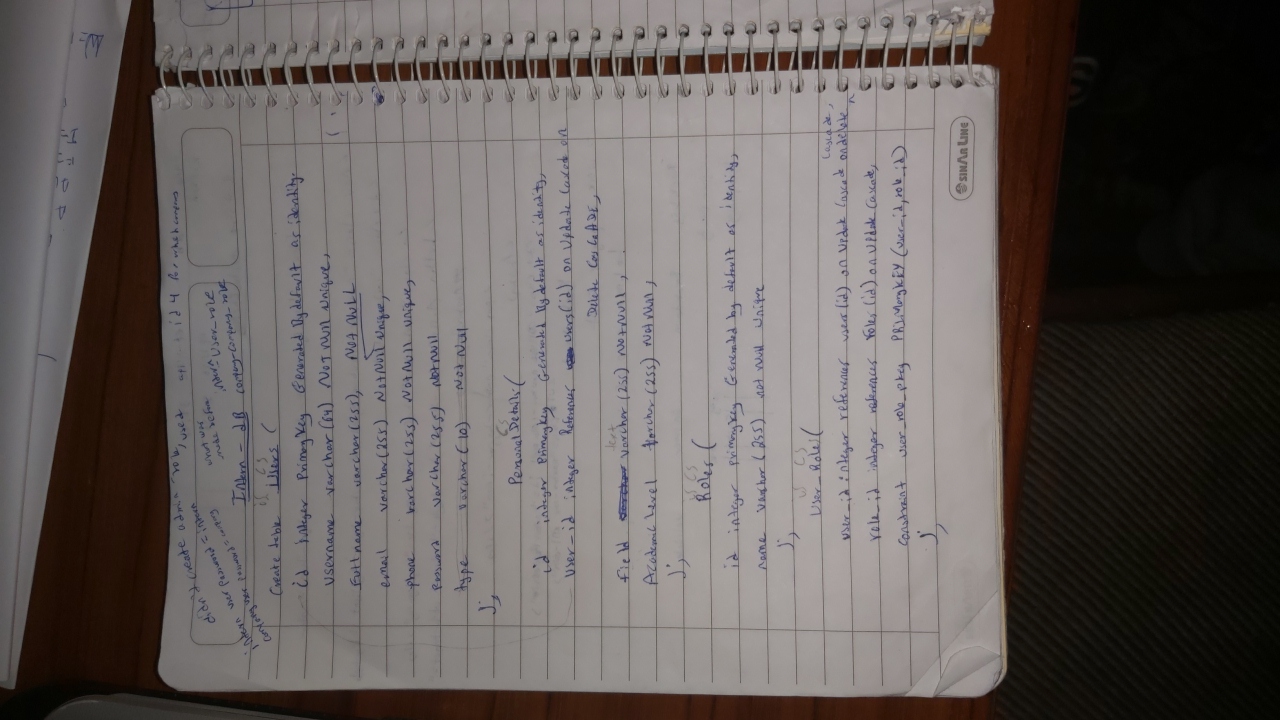 didn't create admin-role, used id 4 for which company
intern user password = intern
company user password = company
what was made before
intern = User_role
company-company_role
Intern - dB
is CS
Create table Users (
id integer Primary Key Generated By default as identity.
username varchar(64) Not Null unique,
Full name varchar(255), Not NULL
email varchar(255) Not Null unique,
phone varchar(255) Not Null unique,
Password varchar(255) Not Null
type varchar(10) Not Null
);
CS
Personal Details (
id integer Primary key Generated By default as identity,
User_id integer References users(id) on Update Cascade on
Delete CasCADE,
text
field varchar(255) Not Null,
Academic Level varchar(255) Not Null,
);
is CS
Roles (
id integer primary key Generated by default as identity,
name varchar(255) not Null Unique
);
is CS
User_Roles (
Cascade,
user_id integer references users(id) on Update Cascade on delete
role_id integer references roles(id) on Update Cascade,
Constraint user_role_pkey PRIMary KEY (user_id, role_id)
);
SINAR LINE